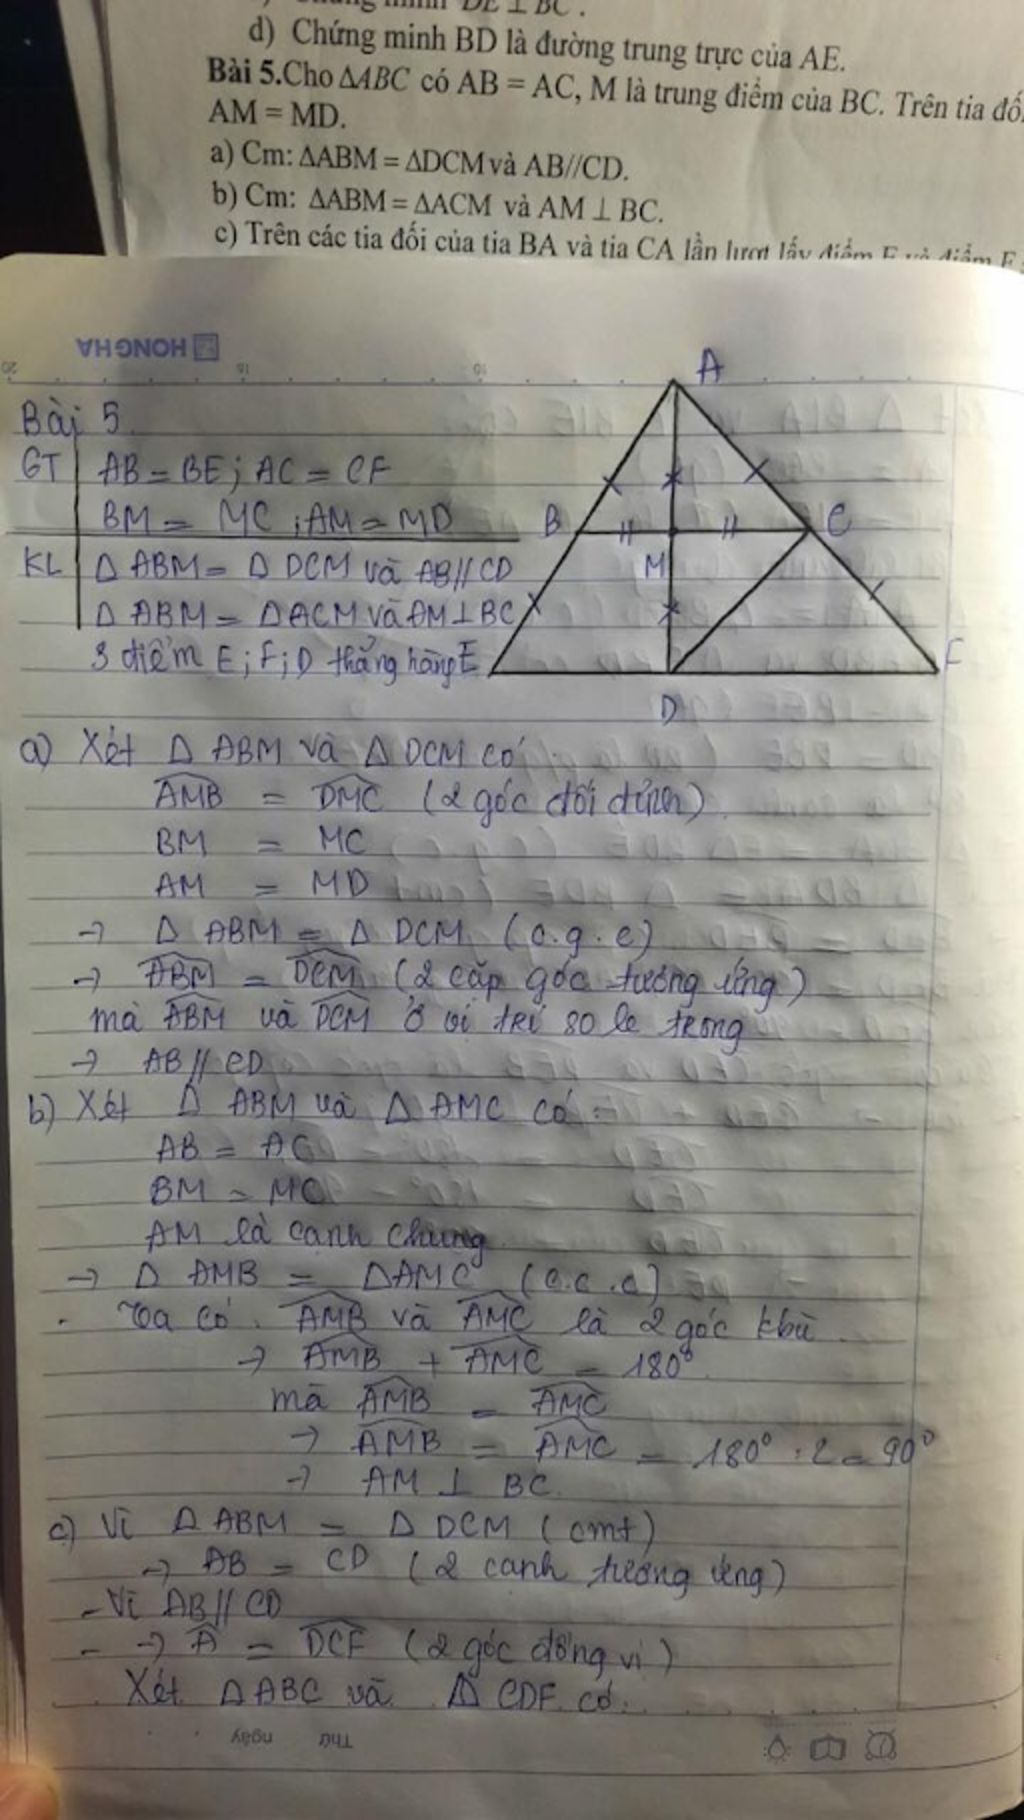 DE ⊥ BC.
d) Chứng minh BD là đường trung trực của AE.
Bài 5.Cho ΔABC có AB = AC, M là trung điểm của BC. Trên tia đối
AM = MD.
a) Cm: ΔABM = ΔDCM và AB//CD.
b) Cm: ΔABM = ΔACM và AM ⊥ BC.
c) Trên các tia đối của tia BA và tia CA lần lượt lấy điểm E và điểm F
HONG HA
20 15 10
Bài 5
GT AB = BE; AC = CF
BM = MC; AM = MD
KL Δ ABM = Δ DCM và AB // CD
Δ ABM = Δ ACM và AM ⊥ BC
3 điểm E; F; D thẳng hàng
A
B
C
M
E
F
D
a) Xét Δ ABM và Δ DCM có
AMB = DMC (2 góc đối đỉnh)
BM = MC
AM = MD
→ Δ ABM = Δ DCM (c.g.c)
→ ABM = DCM (2 cặp góc tương ứng)
mà ABM và DCM ở vị trí so le trong
→ AB // CD
b) Xét Δ ABM và Δ AMC có:
AB = AC
BM = MC
AM là cạnh chung
→ Δ AMB = Δ AMC (c.c.c)
- Ta có. AMB và AMC là 2 góc kbù
→ AMB + AMC = 180°
mà AMB = AMC
→ AMB = AMC = 180° : 2 = 90°
→ AM ⊥ BC.
c) Vì Δ ABM = Δ DCM (cmt)
→ AB = CD (2 cạnh tương ứng)
- Vì AB // CD
- → A = DCF (2 góc đồng vị)
Xét Δ ABC và Δ CDF có:
Thứ ngày